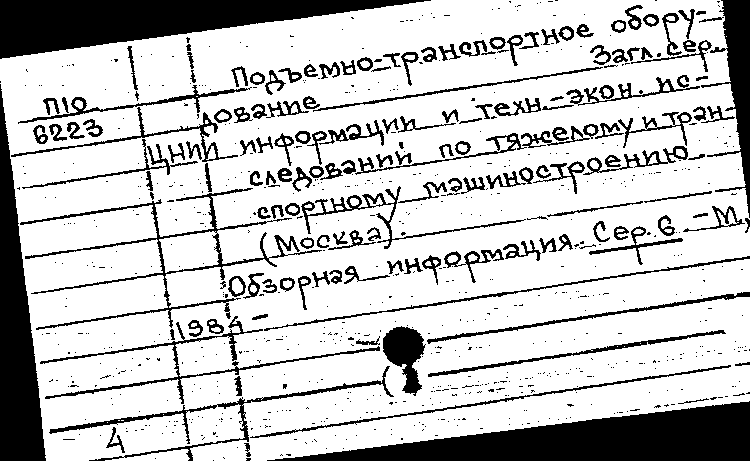 Подъемно-транспортное обору-
дование Загл. сер.
П10
6223
ЦНИИ информации и техн.-экон. ис-
следований по тяжелому и тран-
спортному машиностроению.
(Москва).
Обзорная информация. Сер. 6. - М,
1984 -
4